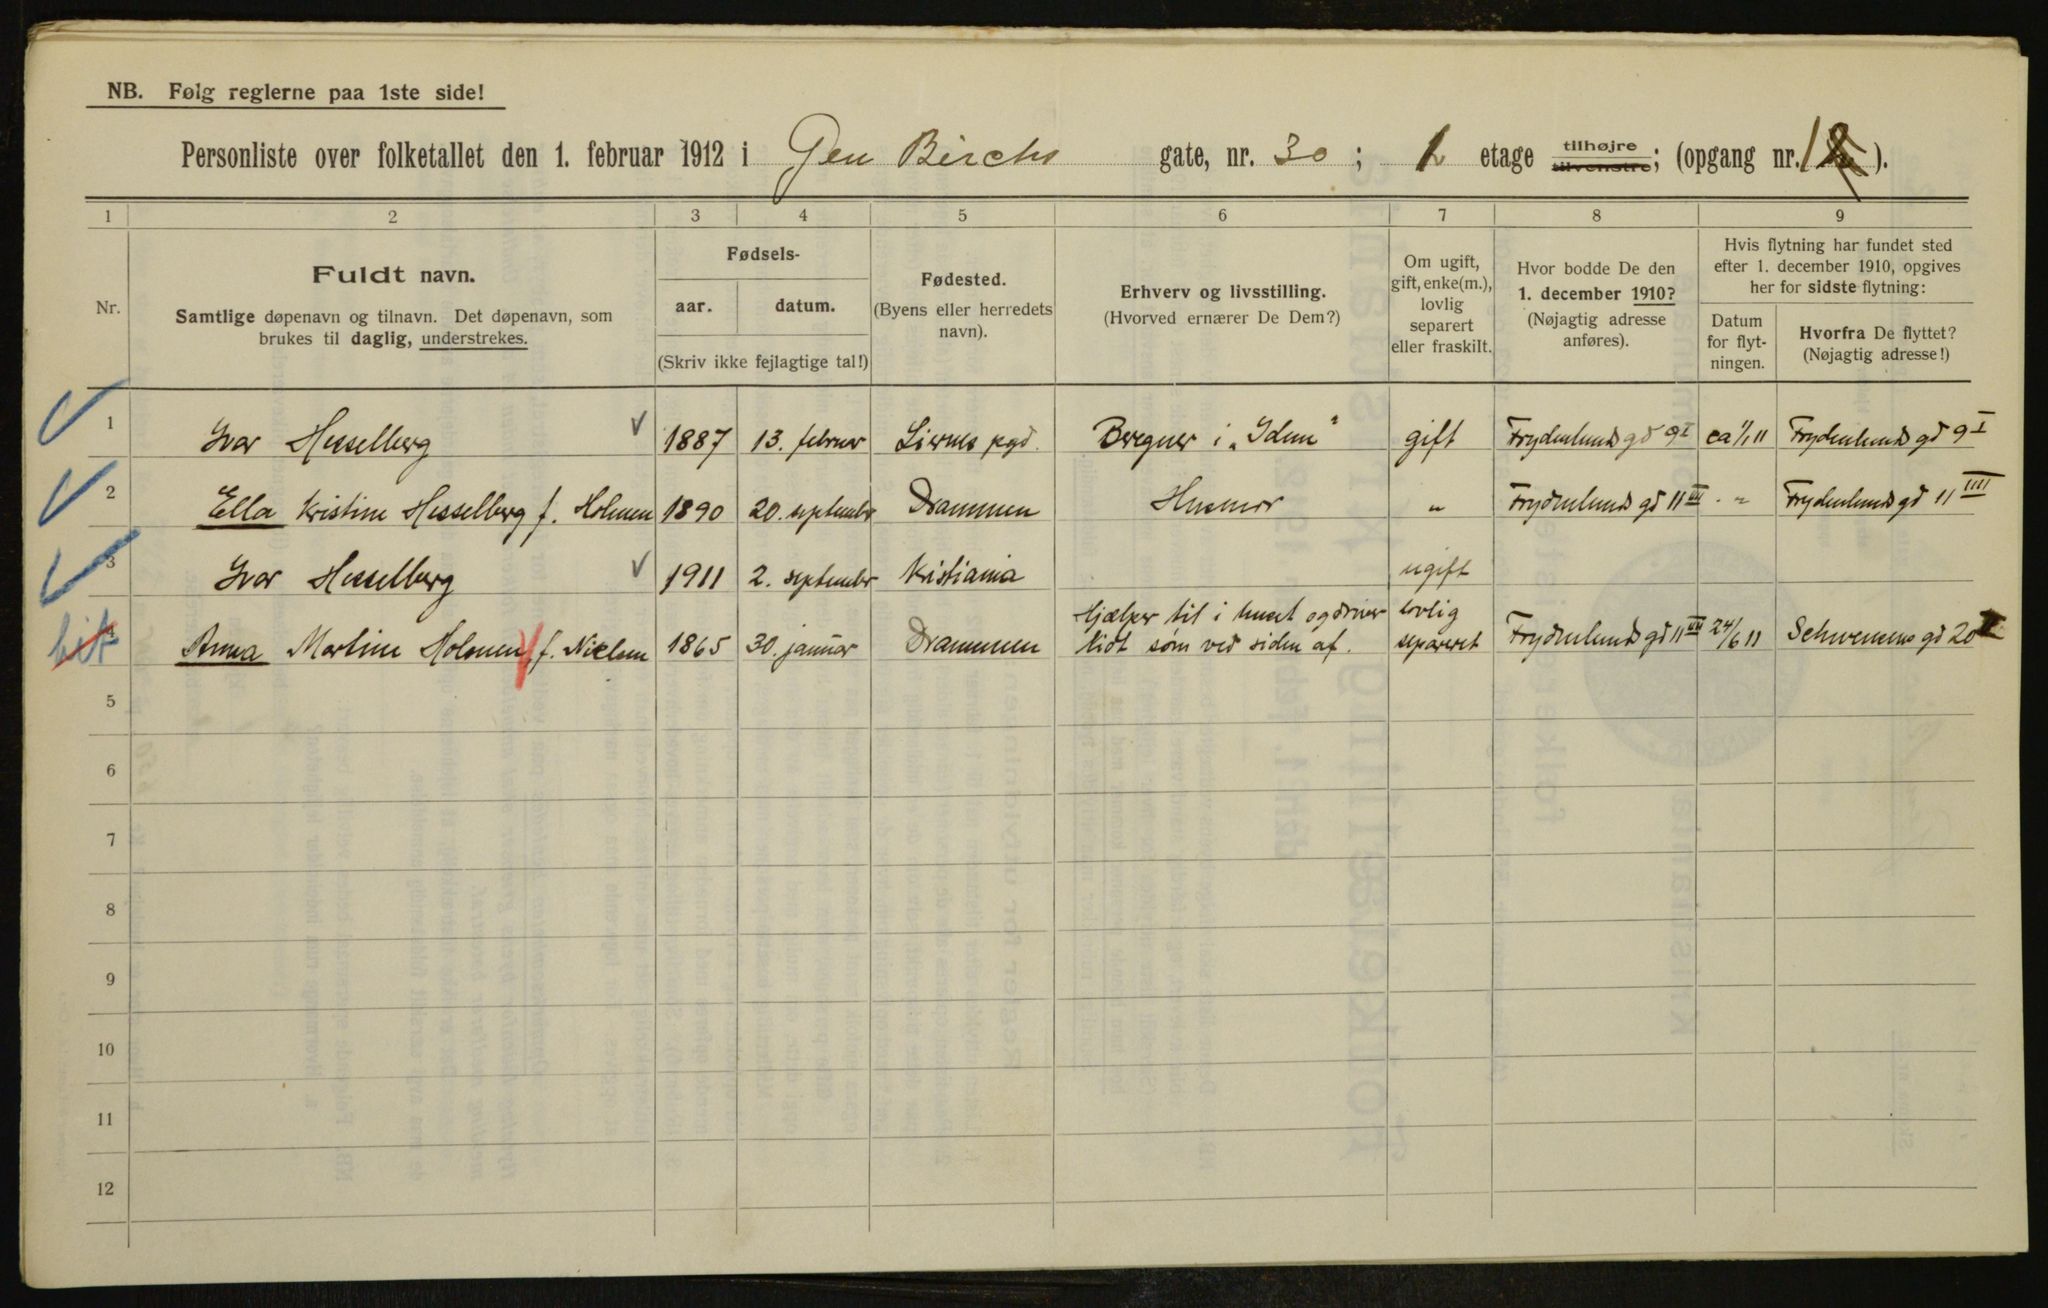 NB. Følg reglerne paa 1ste side!
Personliste over folketallet den 1. februar 1912 i Gen Birchs gate, nr. 30; 1 etage tilhøjre tilvenstre; (opgang nr. 1 ).
1 2 3 4 5 6 7 8 9
Nr.
Fuldt navn.
Samtlige døpenavn og tilnavn. Det døpenavn, som
brukes til daglig, understrekes.
Fødsels-
aar. datum.
(Skriv ikke fejlagtige tal!)
Fødested.
(Byens eller herredets
navn).
Erhverv og livsstilling.
(Hvorved ernærer De Dem?)
Om ugift,
gift, enke(m.),
lovlig
separert
eller fraskilt.
Hvor bodde De den
1. december 1910?
(Nøjagtig adresse
anføres).
Hvis flytning har fundet sted
efter 1. december 1910, opgives
her for sidste flytning:
Datum
for flyt-
ningen.
Hvorfra De flyttet?
(Nøjagtig adresse!)
1 Ivar Hesselberg 1887 13. februar Liernes pgd. Beregner i „Idun" gift Frydenlunds gd 9 I ca 1/1 11 Frydenlunds gd 9 I
2 Ella Kristine Hesselberg f. Holmen 1890 20. september Drammen Husmor „ Frydenlunds gd 11 III „ Frydenlunds gd 11 IIII
3 Ivar Hesselberg 1911 2. september Kristiania ugift
4 Anna Martine Holmen f. Nielsen 1865 30. januar Drammen Hjælper til i huset og driver lidt søm ved siden af. lovlig separeret Frydenlunds gd 11 III 24/6 11 Schwensens gd 20
5
6
7
8
9
10
11
12